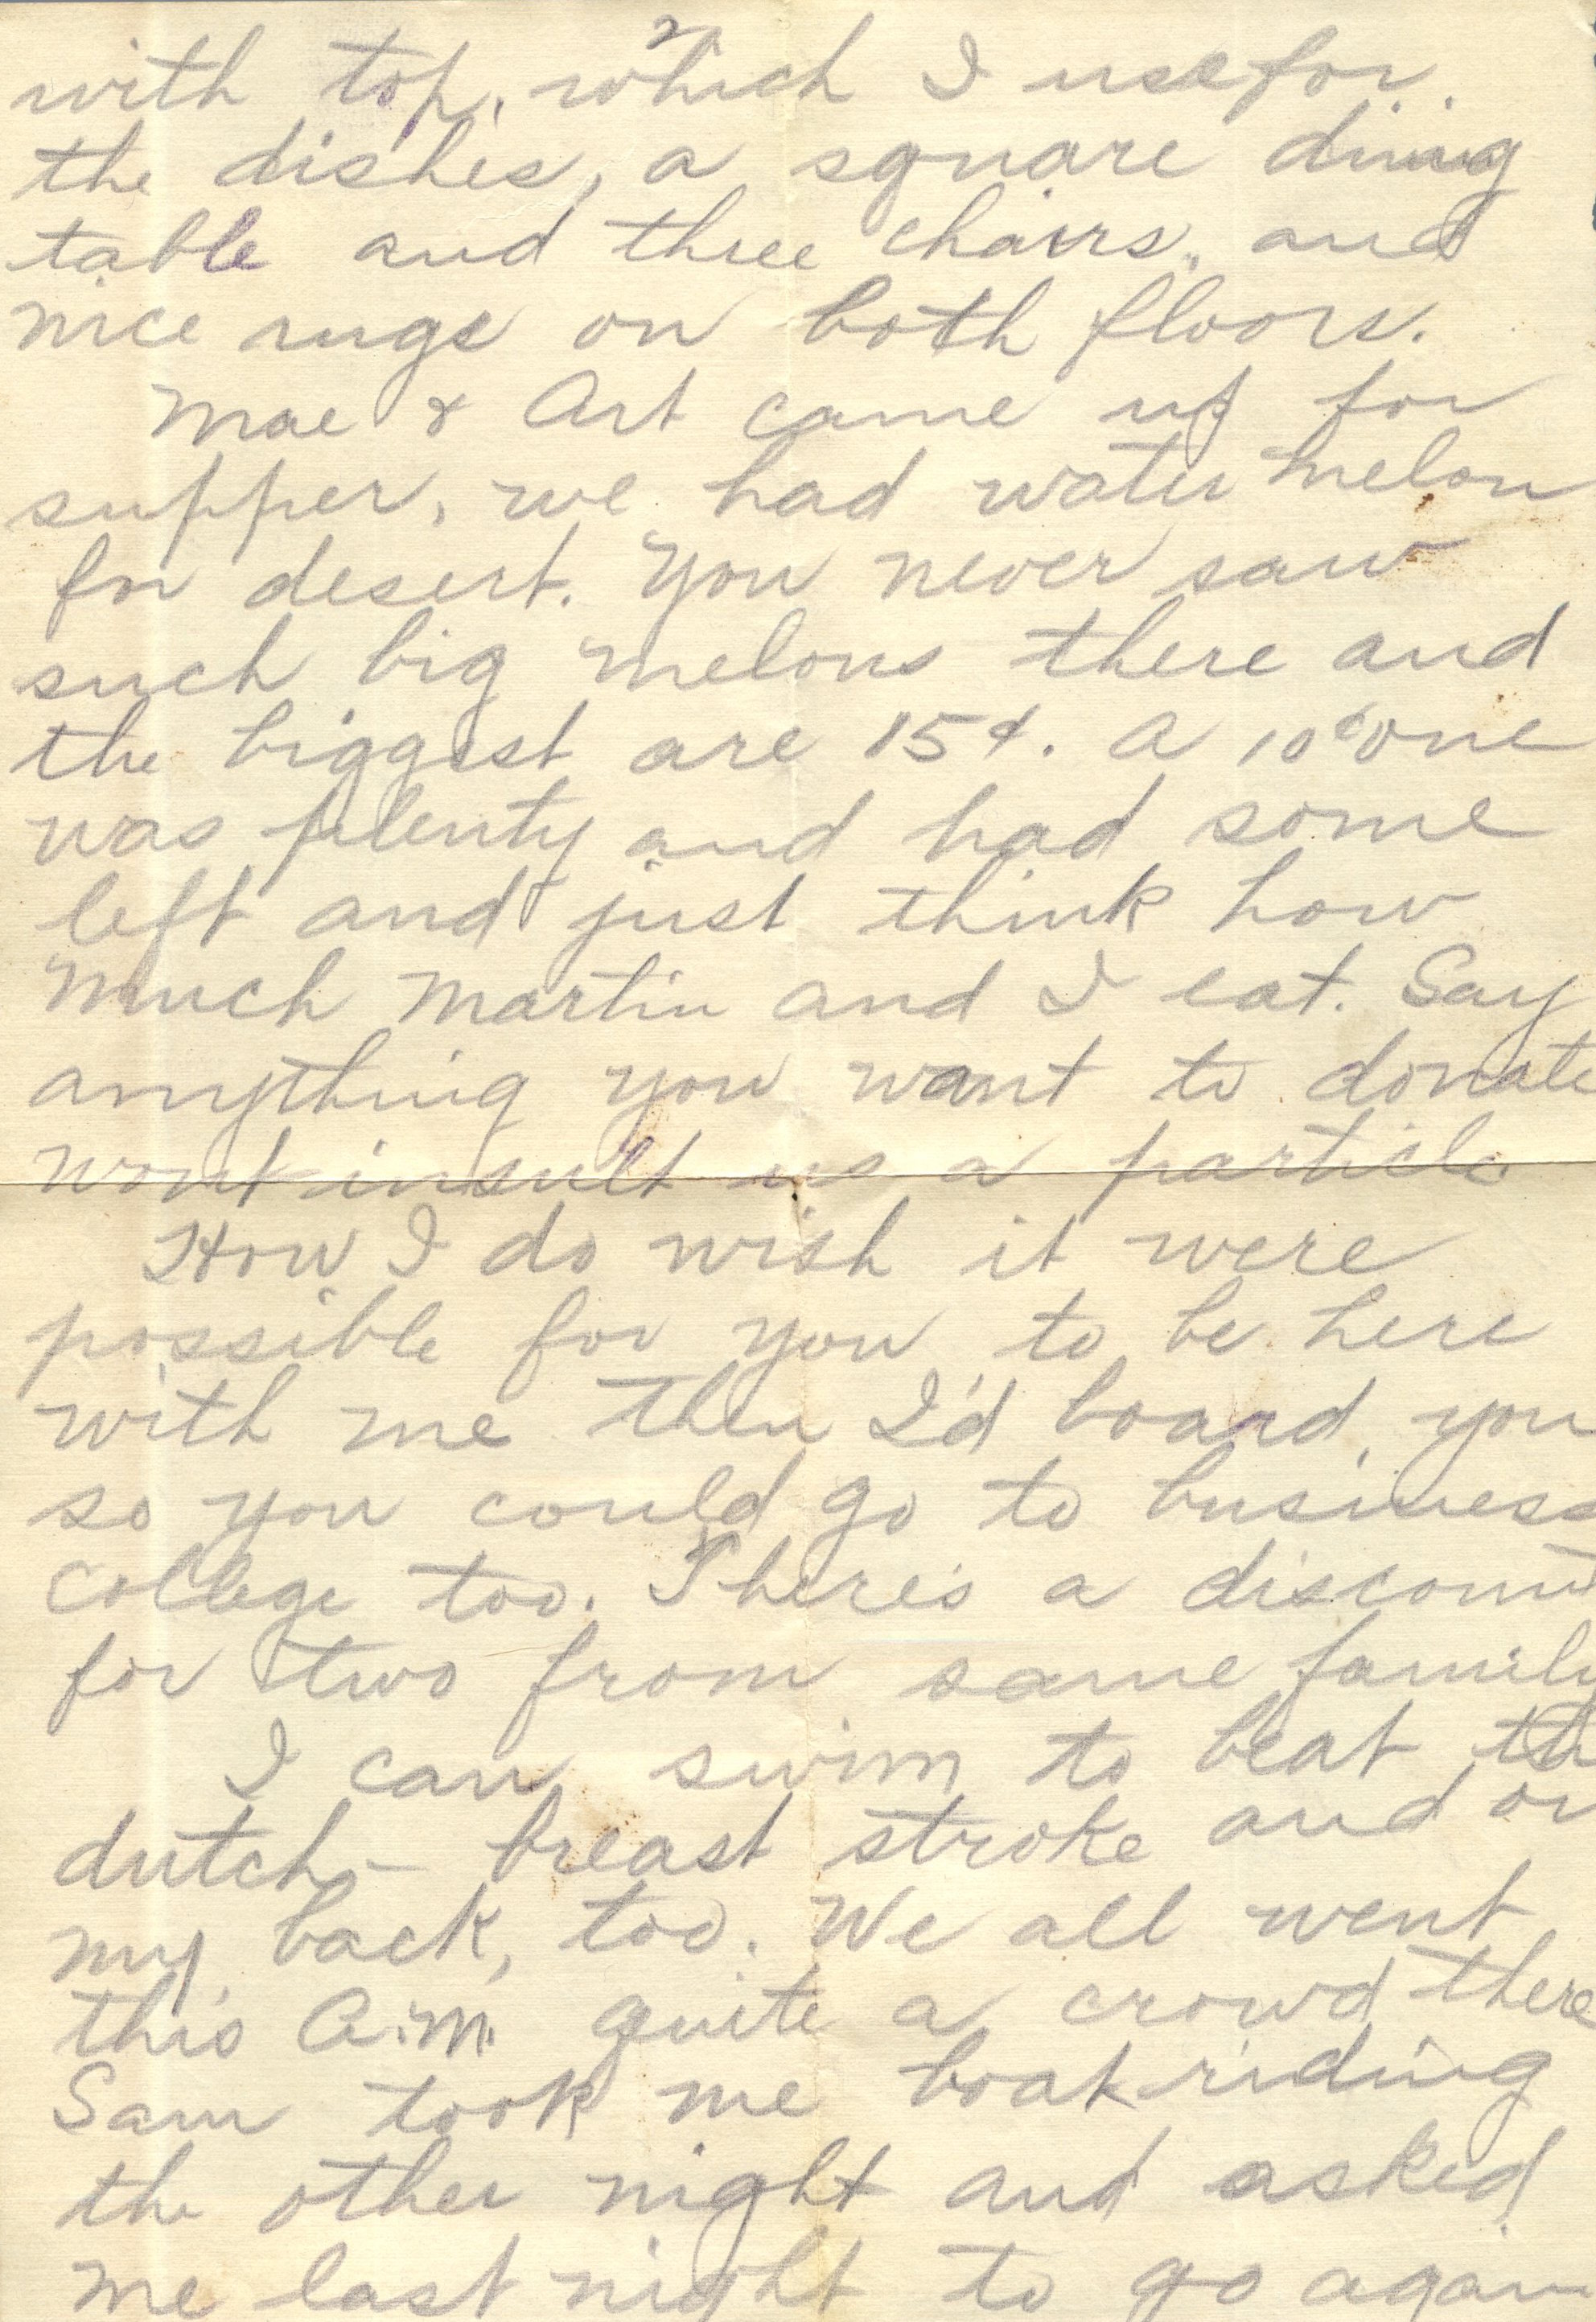 2
with top, which I use for
the dishes, a square dinig
table and three chairs, and
nice rugs on both floors.
Mae & Art came up for
supper, we had water melon
for desert. You never saw
such big melons there and
the biggest are 15¢. A 10¢ one
was plenty and had some
left and just think how
much Martin and I eat. Say
anything you want to donate
wont insult us a particle
How I do wish it were
possible for you to be here
with me then I'd board you
so you could go to business
college too. There's a discount
for two from same family
I can swim to beat the
dutch – breast stroke and on
my back, too. We all went
this A.M. quite a crowd there
Sam took me boat riding
the other night and asked
me last night to go again